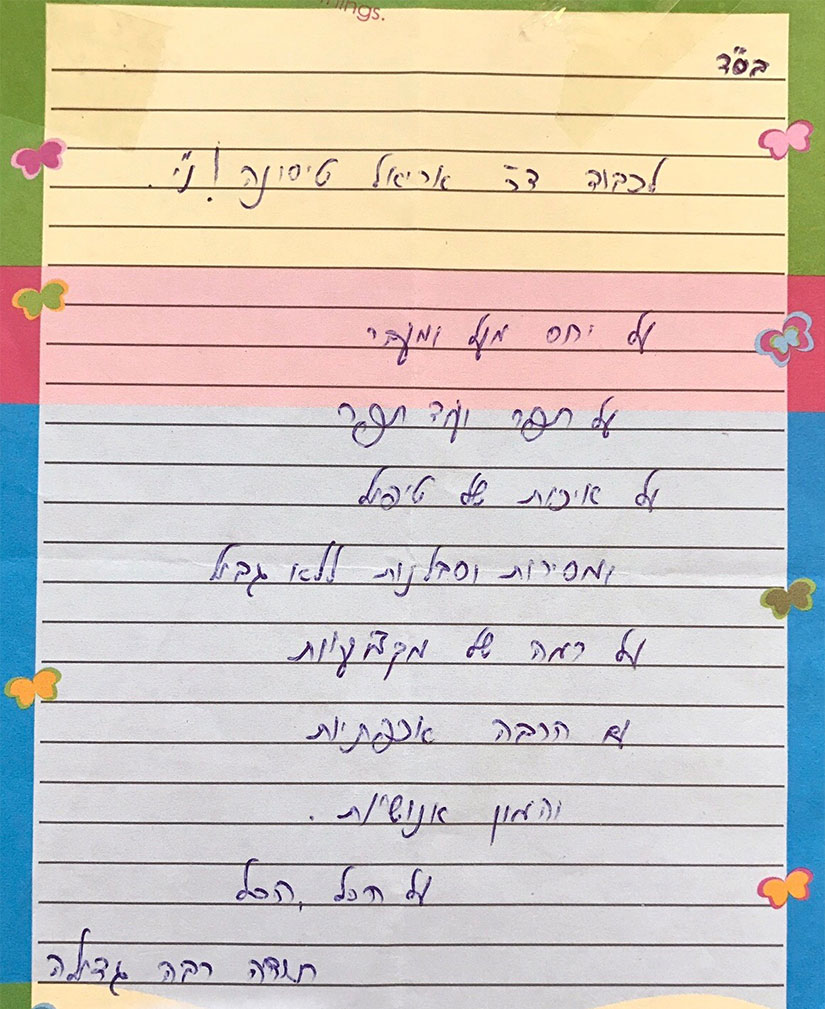 things.
בס"ד
לכבוד ד"ר אריאל טיסונה! נ"י.
על יחס מעל ומעבר
על תפר ועוד תפר
על איכות של טיפול
ומסירות וסבלנות ללא גבול
על רמה של מקצועיות
עם הרבה אכפתיות
והמון אנושיות.
על הכל, הכל
תודה רבה גדולה